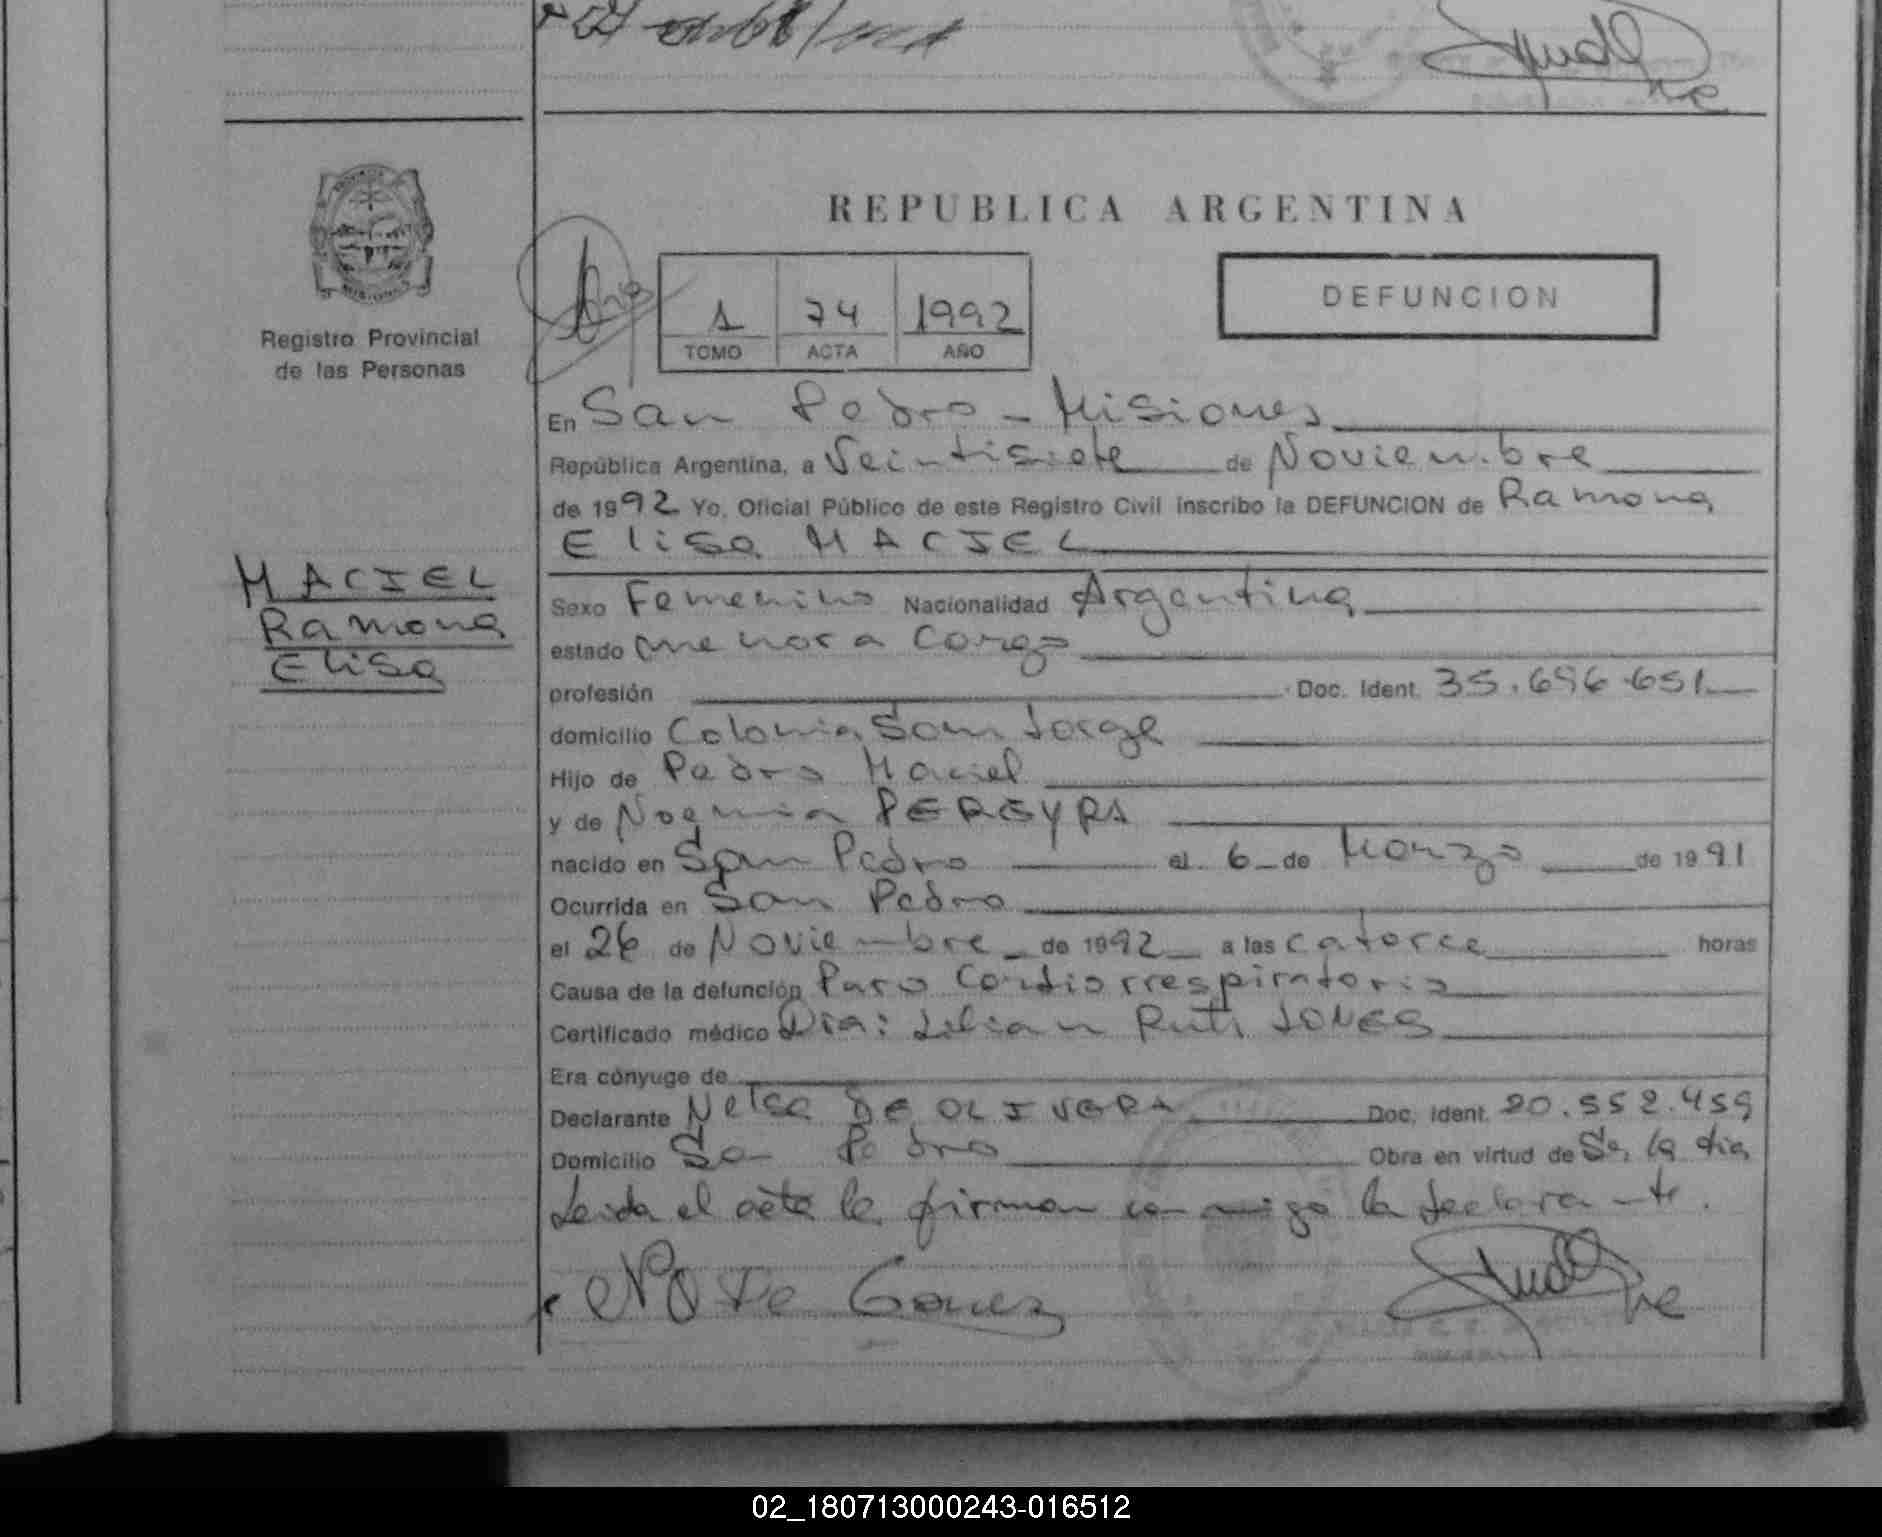 REPUBLICA ARGENTINA
Registro Provincial
de las Personas
1 74 1992
TOMO ACTA AÑO
DEFUNCION
En San Pedro - Misiones
República Argentina, a Veintisiete de Noviembre
de 1992 Yo, Oficial Público de este Registro Civil inscribo la DEFUNCION de Ramona
Elisa MACIEL
MACIEL
Ramona
Elisa
Sexo Femenino Nacionalidad Argentina
estado menor a cargo
profesión Doc. Ident. 35.696.651
domicilio Colonia San Jorge
Hijo de Pedro Maciel
y de Noemia PEREYRA
nacido en San Pedro el 6 de Marzo de 1991
Ocurrida en San Pedro
el 26 de Noviembre de 1992 a las catorce horas
Causa de la defunción Paro Cardiorrespiratorio
Certificado médico Dra: Lilian Ruth JONES
Era cónyuge de
Declarante Nelsa DE OLIVERA Doc. Ident. 20.552.459
Domicilio San Pedro Obra en virtud de Ser la tia
Leida el acta la firman conmigo la declarante.
N O De Gomez
02_180713000243-016512